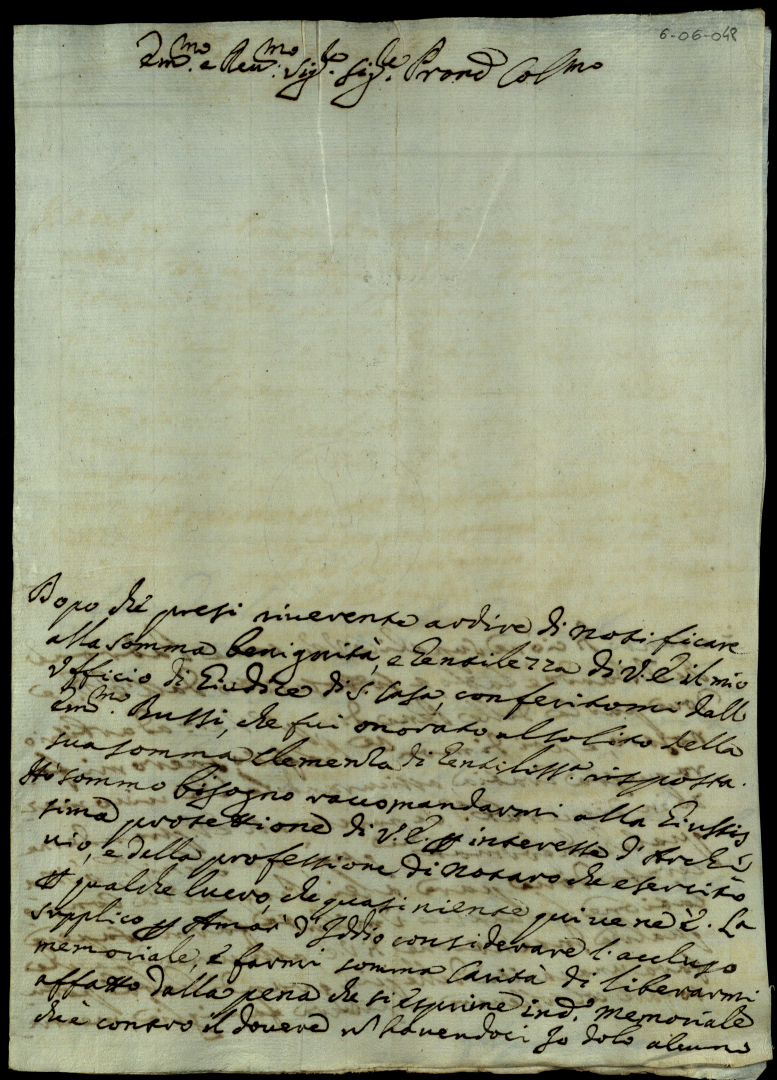 6-06-048
Em.mo e Reu.mo Sig.re Sig.re Prond Colmo
Dopo che presi riuerente ardire di notificare
alla somma benignità, e Gentilezza di V.E. il mio
Vfficio di Giudice di S. Casa, conferitomi dall
Em.mo Bussi, che fui onorato al solito della
sua somma Clemenza di Gentiliss.a risposta.
Hò sommo bisogno raccomandarmi alla Giustis
sima protettione di V.E. p interesse d'Archi
uio, e della professione di Notaro che esercito
p qualche lucro, che quasi niente quiue ne è. La
supplico p Amor d'Iddio considerare l'accluso
memoriale, e farmi somma Carità di liberarmi
affatto dalla pena che si esprime in d.o memoriale
ch'è contro il douere n hauendoci Io dolo alcuno